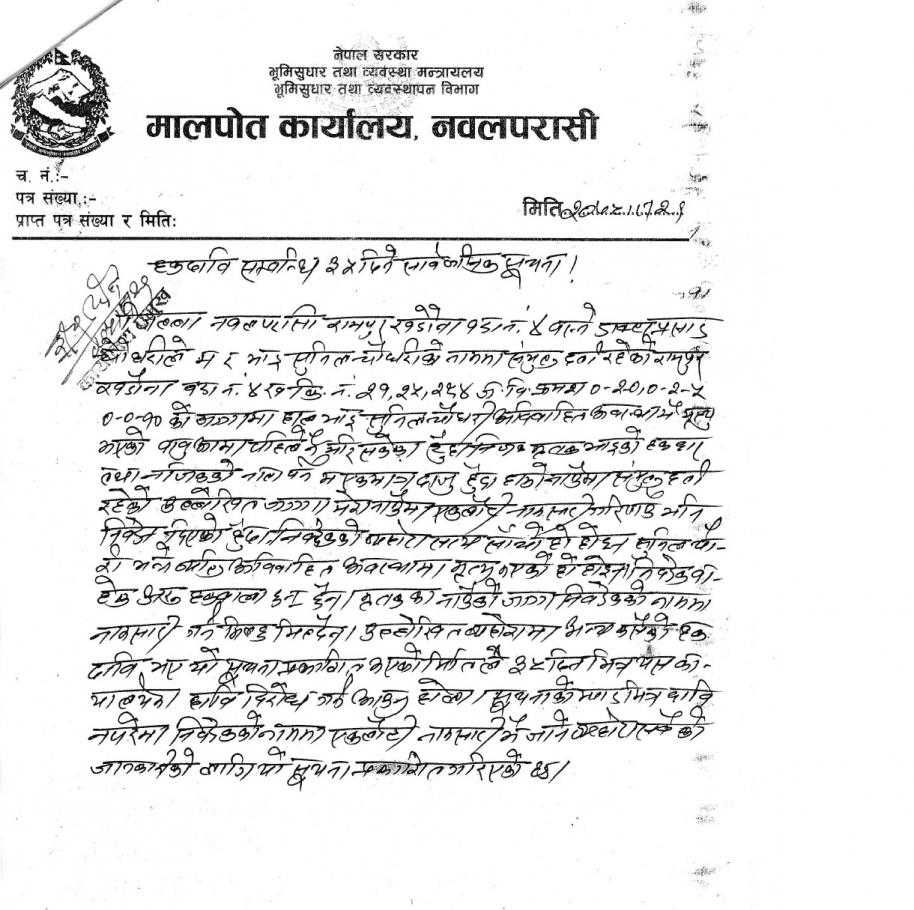 नेपाल सरकार
भूमिसुधार तथा व्यवस्था मन्त्रायलय
भूमिसुधार तथा व्यवस्थापन विभाग
मालपोत कार्यालय, नवलपरासी
च. नं.:-
पत्र संख्या.:-
प्राप्त पत्र संख्या र मिति:
मिति
हकदावि सम्वन्धि ३५ दिने सार्वजनिक सूचना !
जिल्ला नवलपरासि रामपुर खडौना वडा नं. ४ वस्ने प्रसाद
चौधरीले म र भाई सुनिल चौधरीको नाममा संयुक्त दर्ता रहेको रामपुर
खडौना वडा नं. ४ ख कि. नं. २१, २५, २५४ ज. वि. क्रमश ०-२०, ०-२-५
०-०-१० को जग्गामा हाल भाई सुनिल चौधरी अविवाहित अवस्थामै मृत्यु
भएको वावु आमा पहिले नै मरिसकेका हुँदा निज मृतक भाइको हकदार
तथा नजिकको नाता पर्ने म एकमात्र दाजु हुँदा हाम्रो नाउँमा संयुक्त दर्ता
रहेको उल्लेखित जग्गा मेरो नाउँमा एकलौटी नामसारी गरिपाउ भनि
निवेदन दिएको हुँदा निवेदकको व्यहोरा साचो हो होइन सुनिल चौध-
री भन्ने व्यक्ति अविवाहित अवस्थामा मृत्यु भएको हो होइन निवेदक वा-
हेक अरु हकवाला छन् छैन। मृतकका नाउँको जग्गा निवेदकको नाममा
नामसारी गर्न मिल्दैन। उल्लेखित व्यहोरामा अन्य कसैको हक
दावि भए यो सूचना प्रकाशित भएको मितिले ३५ दिन भित्र यस का-
र्यालयमा दावि विरोध गर्न आउनु होला। सूचनाको म्याद भित्र दावि
नपरेमा निवेदकको नाममा एकलौटी नामसारी भै जाने व्यहोरा
जानकारीको लागि यो सूचना प्रकाशित गरिएको छ।